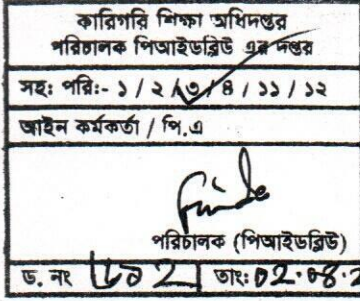 কারিগরি শিক্ষা অধিদপ্তর
পরিচালক পিআইডব্লিউ এর দপ্তর
সহ: পরি:- ১ / ২ / ৩ / ৪ / ১১ / ১২
আইন কর্মকর্তা / পি.এ
পরিচালক (পিআইডব্লিউ)
ড. নং তাং: